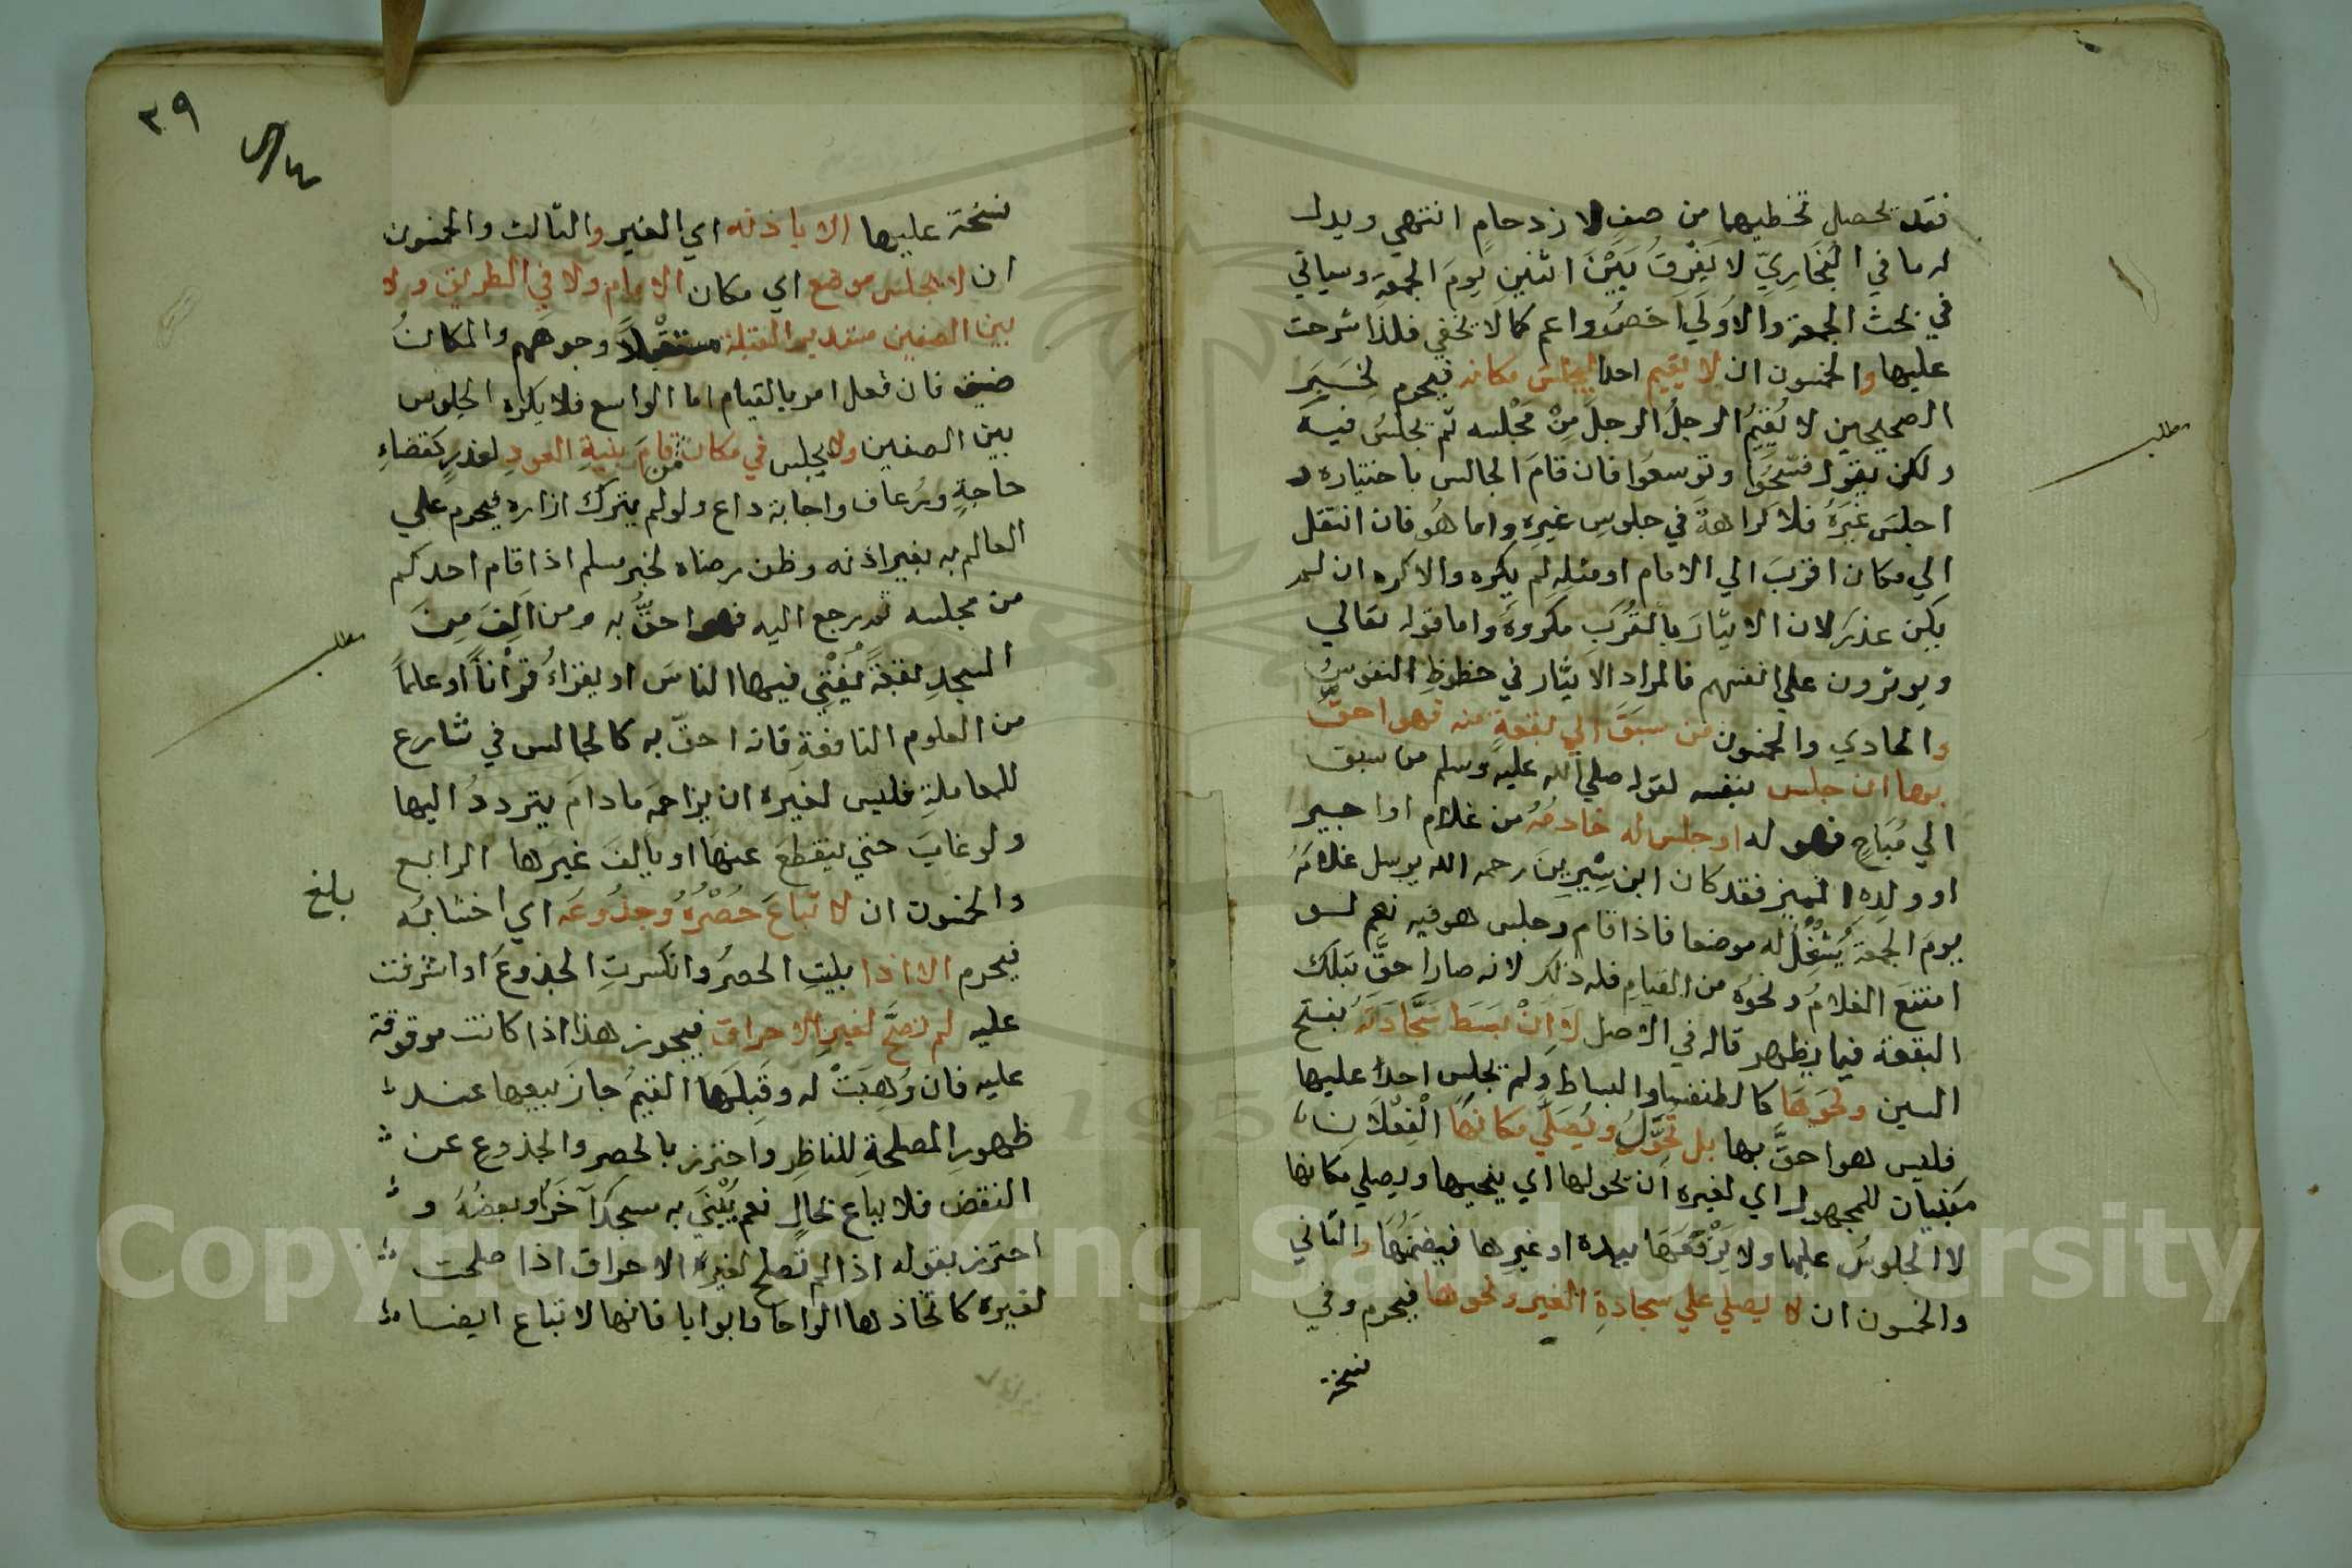 فقد يحصل تخطيهما من صف لازدحام انتهي ويدل
له ما في البُخَارِيِّ لا يَفْرقُ بَيْنَ اثنين يومَ الجمعة وسياتي
في بحث الجمعة والاولي اخصر واعم كما لا يخفي فلذا شرحت
عليها والخمسون ان لا يقيم احدا ليجلس مكانه فيحرم لخبر
الصحيحين لا يُقيمُ الرجلُ الرجلَ مِنْ مَجْلسه ثم يجلسُ فيه
ولكن يقول تفسحوا وتوسعوا فان قامَ الجالس باختياره و
اجلسَ غيرَهُ فلا كراهةَ في جلوس غيرِه واما هُو فان انتقل
الي مكان اقربَ الي الامام او مثله لم يكره والا كره ان لم
يكن عذر لان الايثارَ بالقُرَبِ مكروهٌ واما قوله تعالي
ويوثرون علي انفسهم فالمراد الايثار في حظوظ النفوس
والحادي والخمسون من سبق الي بقعةٍ منه فهو احقُّ
بها ان جلس بنفسه لقوله صلي الله عليه وسلم من سبق
الي مُبَاحٍ فهو له او جلس له خادمُهُ من غلام او اجير
او ولدِهِ المميز فقد كان ابن سِيْرِينَ رحمه الله يرسل غلامَهُ
يومَ الجمعة يَشْغِلُ له موضعا فاذا قام وجلس هو فيه نعم لو
امتنعَ الغلامُ ونحوُه من القيام فله ذلك لانه صار احقَّ بتلك
البقعة فيما يظهر قاله في الاصل لا انْ بَسَطَ سَجَّادَتَهُ بفتح
السين ونحوَهَا كالطنفسة والبساط ولم يجلس احداً عليها
فليس هو احقَّ بها بل تُحَوَّلُ ويُصَلَّي مكانها الْفِعْلَانِ
مبنيان للمجهول اي لغيره ان يحولها اي ينحيها ويصلي مكانها
لا الجلوسُ عليها ولا يَرْفَعَهَا بيده او غيرها فيضمنُهَا والثاني
والخمسون ان لا يصلي علي سجادةِ الغير ونحوها فيحرم وفي
نسخة
مطلب
٣٩
نسخة عليها الا باذنه اي الغير والثالث والخمسون
ان لا يجلس موضع اي مكان الامام ولا في الطريق ولا
بين الصفين مستدبر القبلة مستقبلاً وجوههم والمكانُ
ضيق فان فعل امر بالقيام اما الواسع فلا يكره الجلوس
بين الصفين ولا يجلس في مكان من قامَ بنيةِ العودِ لعذرٍ كقضاءِ
حاجةٍ ورُعاف واجابة داع ولو لم يترك ازاره فيحرم علي
العالم به بغير اذنه وظن رضاه لخبر مسلم اذا قام احدكم
من مجلسه ثم رجع اليه فهو احقُّ به ومن اَلِفَ مِنَ
المسجدِ بقعةً يُفْتِي فيها الناسَ او يقراءُ قرْاناً او علماً
من العلوم النافعةِ فانه احقّ به كالجالس في شارع
للمعاملةِ فليس لغيره ان يزاحمَه ما دامَ يترددُ اليها
ولو غابَ حتي ينقطعَ عنها او يالفَ غيرها الرابع
والخمسون ان لا تباعَ حُصُرُهُ وجذُوعَه اي اخشابُه
فيحرم الا اذا بليتِ الحصرُ وانكسرتِ الجذوعُ او اشرفت
عليه لم تصحَّ لغيرِ الاحراق فيجوز هذا اذا كانت موقوفة
عليه فان وُهِبَتْ له وقَبِلَهَا القيمُ جازَ بيعها عند
ظهورِ المصلحةِ للناظِرِ واحترز بالحصر والجذوع عن
النقض فلا يباع بحالٍ نعم يُبْنَي به مسجدٌ آخَرُ او بعضُهُ و
احترز بقوله اذا لم تصلح لغير الاحراق اذا صلحت
لغيره كاتخاذها الواحا وابوابا فانها لا تباع ايضا
مطلب
بلغ